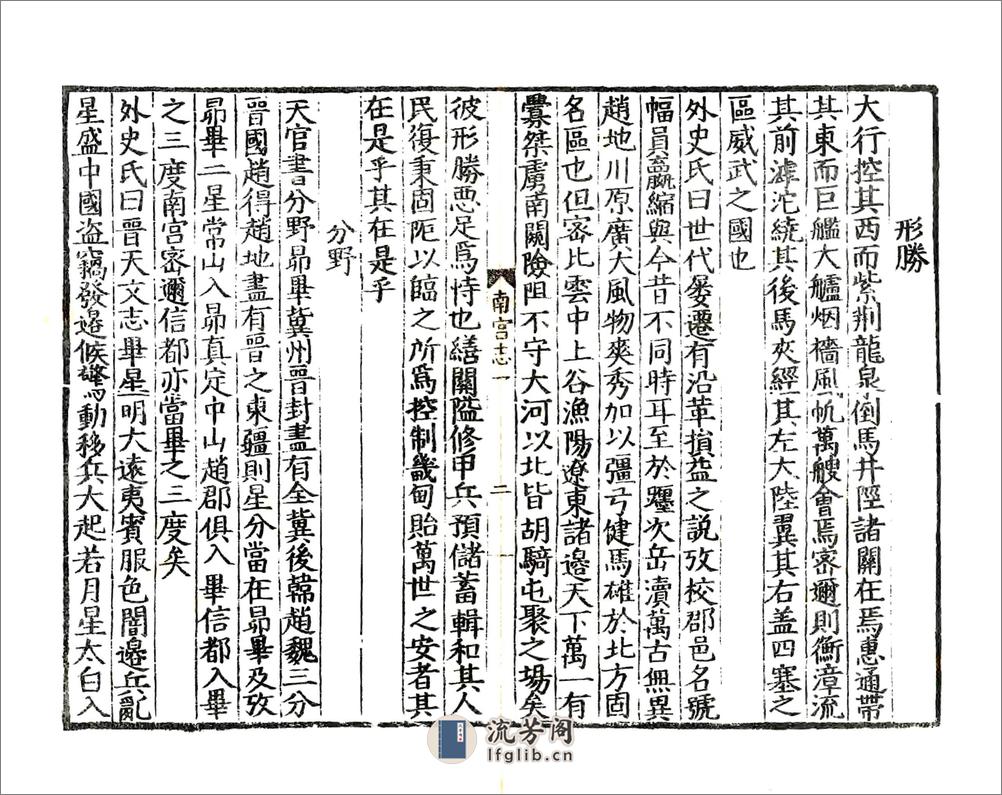 形勝
大行控其西而紫荆龍泉倒馬井陘諸關在焉惠通帶
其東而巨艦大艫烟檣風帆萬艘會焉密邇則衡漳流
其前滹沱繞其後馬夾經其左大陸翼其右盖四塞之
區威武之國也
外史氏曰世代屢遷有沿革損益之說攷校郡邑名號
幅員嬴縮與今昔不同時耳至於躔次岳瀆萬古無異
趙地川原廣大風物爽秀加以彊弓健馬雄於北方固
名區也但密比雲中上谷漁陽遼東諸邉天下萬一有
釁桀虜南闚險阻不守大河以北皆胡騎屯聚之場矣
南宫志一
二
彼形勝惡足爲恃也繕關隘修甲兵預儲蓄輯和其人
民復秉固阨以臨之所爲控制畿甸貽萬世之安者其
在是乎其在是乎
分野
天官書分野昴畢冀州晉封盡有全冀後韓趙魏三分
晉國趙得趙地盡有晉之東疆則星分當在昴畢及攷
昴畢二星常山入昴真定中山趙郡俱入畢信都入畢
之三度南宫密邇信都亦當畢之三度矣
外史氏曰晉天文志畢星明大遠夷賓服色闇邉兵亂
星盛中國盗竊發邉候驚動移兵大起若月星太白入
流芳阁
lfglib.cn